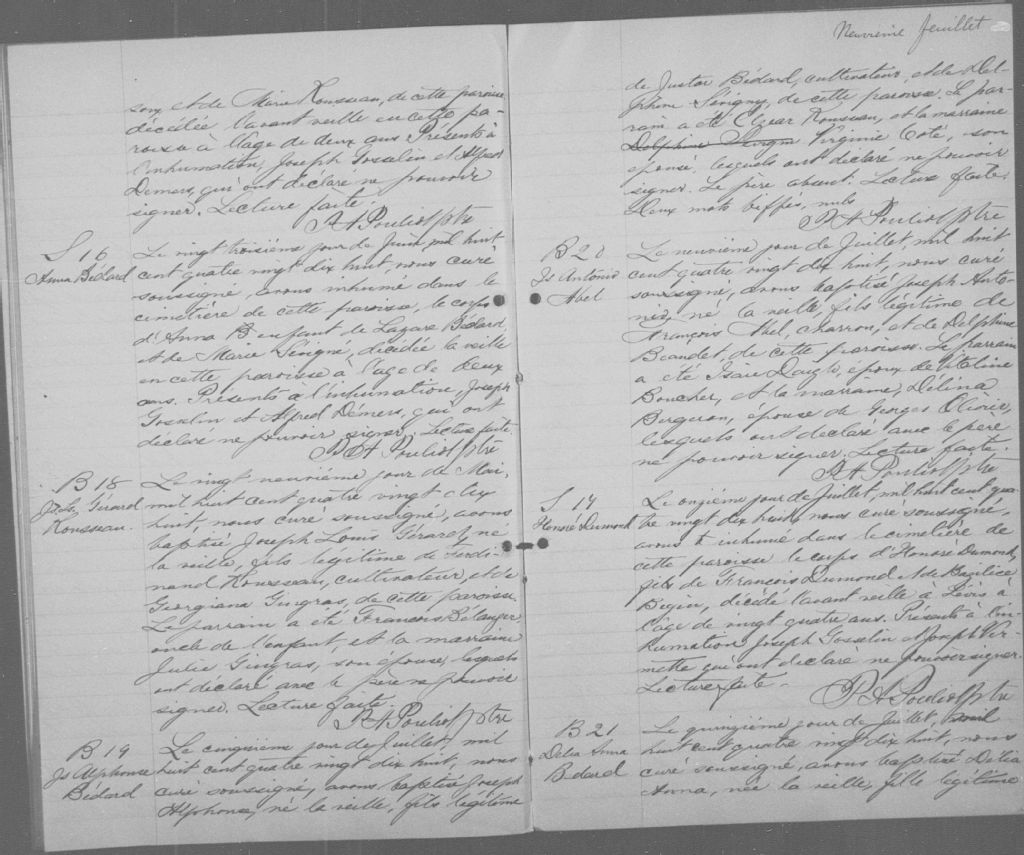 son, et de Marie Rousseau, de cette paroisse
décédée l'avant veille en cette pa-
roisse à l'âge de deux ans Présents à
l'inhumation, Joseph Gosselin et Alfred
Demers, qui ont déclaré ne pouvoir
signer. Lecture faite.
P. A. Pouliot Ptre
S 16
Anna Bédard
Le vingt troisième jour de Juin, mil huit
cent quatre vingt dix huit, nous curé
soussigné, avons inhumé dans le
cimetière de cette paroisse, le corps
d'Anna B enfant de Lazare Bédard,
et de Marie Sévigné, décédée la veille
en cette paroisse à l'age de deux
ans. Présents à l'inhumation, Joseph
Gosselin et Alfred Démers, qui ont
déclaré ne pouvoir signer. Lecture faite.
P. A. Pouliot Ptre
B 18
Js Ls Gérard
Rousseau.
Le vingt neuvième jour de Mai,
mil huit cent quatre vingt dix
huit, nous curé soussigné, avons
baptisé Joseph Louis Gérard, né
la veille, fils légitime de Ferdi-
nand Rousseau, cultivateur, et de
Georgiana Gingras, de cette paroisse.
Le parrain a été Francois Bélanger,
oncle de l'enfant, et la marraine
Julie Gingras, son épouse, lesquels
ont déclaré avec le père ne pouvoir
signer. Lecture faite.
P. A. Pouliot Ptre
B 19
Js Alphonse
Bédard
Le cinquième jour de Juillet, mil
huit cent quatre vingt dix huit, nous
curé soussigné, avons baptisé Joseph
Alphonse, né la veille, fils légitime
Neuvième feuillet
de Justar Bédard, cultivateur, et de Del-
phine Sévigny, de cette paroisse. Le par-
rain a été Elzear Rousseau, et la marraine
Delphine Sevigny Virginie Coté, son
epouse, lesquels ont déclaré ne pouvoir
signer. Le père absent. Lecture faite.
Deux mots biffés, nuls
P. A. Pouliot Ptre
B 20
Js Antonio
Abel
Le neuvième jour de Juillet, mil huit
cent quatre vingt dix huit, nous curé
soussigné, avons baptisé Joseph Anto-
nio, né la veille, fils légitime de
François Abel, charron, et de Delphine
Beaudet, de cette paroisse. Le parrain
a été Isaïe epoux de Vitaline
Boucher, et la marraine, Délina
Bergeron, épouse de Georges Olivier,
lesquels ont déclaré avec le père
ne pouvoir signer. Lecture faite.
P. A. Pouliot Ptre
S 17
Honoré Dumont
Le onzième jour de Juillet, mil huit cent qua-
tre vingt dix huit, nous curé soussigné,
avons inhumé dans le cimetière de
cette paroisse le corps d'Honoré Dumond,
fils de François Dumond et de Basilice
Bégin, décédé l'avant veille à Lévis à
l'âge de vingt quatre ans. Présents à l'in-
humation Joseph Gosselin et Joseph Ver-
mette qui ont déclaré ne pouvoir signer.
Lecture faite.
P. A. Pouliot Ptre
B 21
Délia Anna
Bédard
Le quinzième jour de Juillet, mil
huit cent quatre vingt dix huit, nous
curé soussigné, avons baptisé Délia
Anna, née la veille, fille légitime